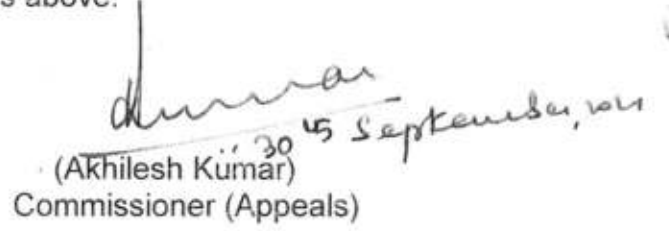 s above.
30th September, 2021
(Akhilesh Kumar)
Commissioner (Appeals)